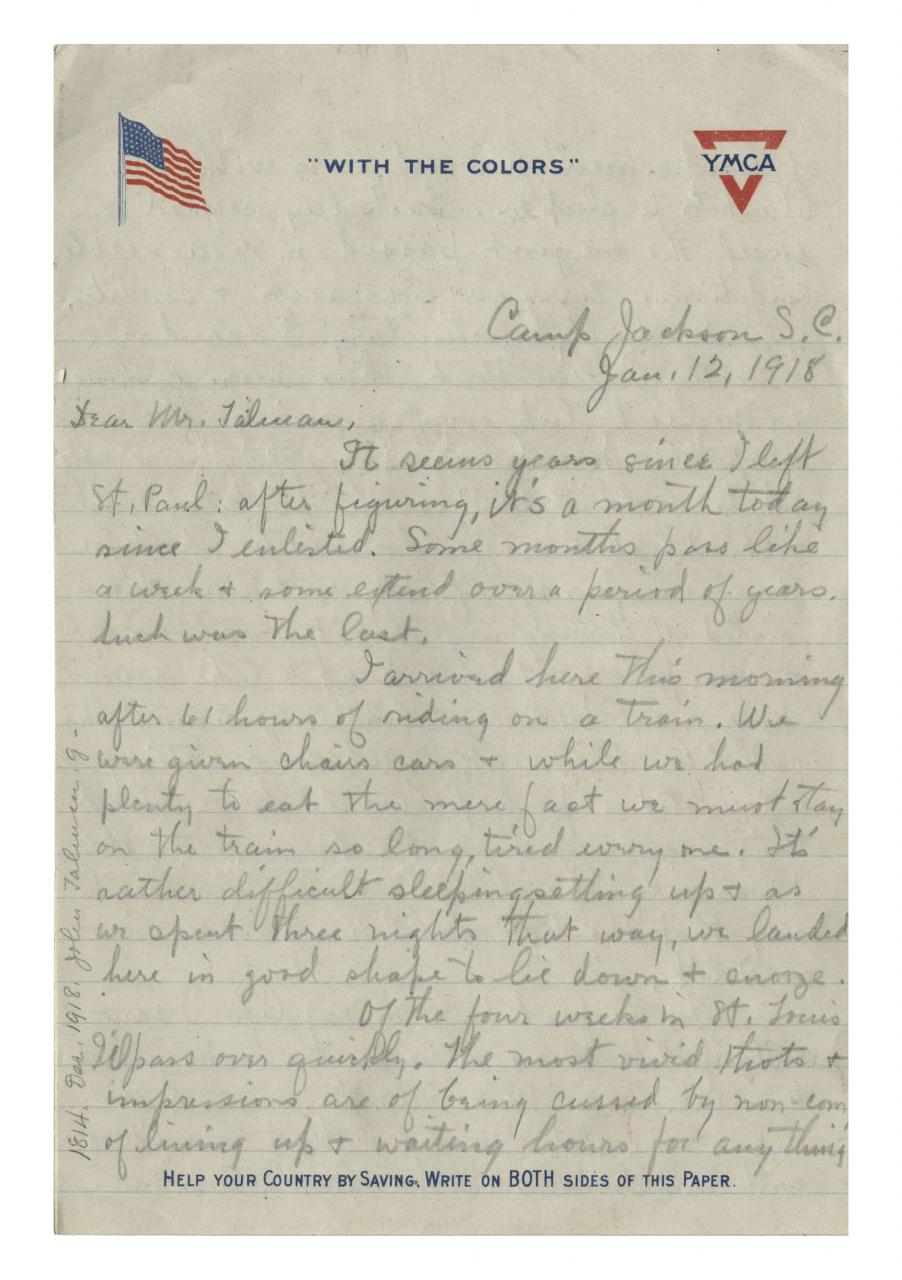 "WITH THE COLORS"
YMCA
Camp Jackson S.C.
Jan. 12, 1918
Dear Mr. Talman,
It seems years since I left
St. Paul: after figuring, it's a month today
since I enlisted. Some months pass like
a week & some extend over a period of years.
Such was the last.
I arrived here this morning
after 61 hours of riding on a train. We
were given chairs cars & while we had
plenty to eat the mere fact we must stay
on the train so long, tired every me. It's
rather difficult sleeping setting up & as
we spent three nights that way, we landed
here in good shape to lie down & snooze.
Of the four weeks in St. Louis
I'll pass over quickly. The most vivid thots &
impressions are of being cussed by non-com
of lining up & waiting hours for anything
HELP YOUR COUNTRY BY SAVING. WRITE ON BOTH SIDES OF THIS PAPER.
1814. Dec. 1918. John Talman. g-